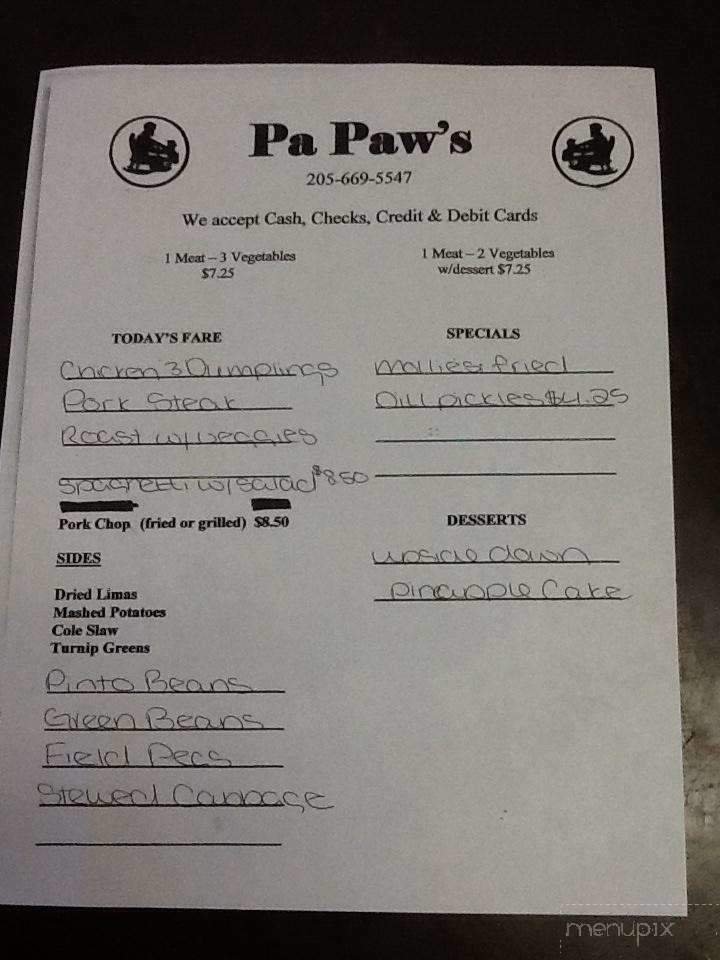 Pa Paw's
205-669-5547
We accept Cash, Checks, Credit & Debit Cards
1 Meat – 3 Vegetables
$7.25
1 Meat – 2 Vegetables
w/dessert $7.25
TODAY'S FARE
Chicken & Dumplings
Pork Steak
Roast w/veggies
Spaghetti w/salad $8.50
Pork Chop (fried or grilled) $8.50
SIDES
Dried Limas
Mashed Potatoes
Cole Slaw
Turnip Greens
Pinto Beans
Green Beans
Field Peas
Stewed Cabbage
SPECIALS
Mollie's fried
Dill pickles $4.25
DESSERTS
upside down
pineapple Cake
menupix